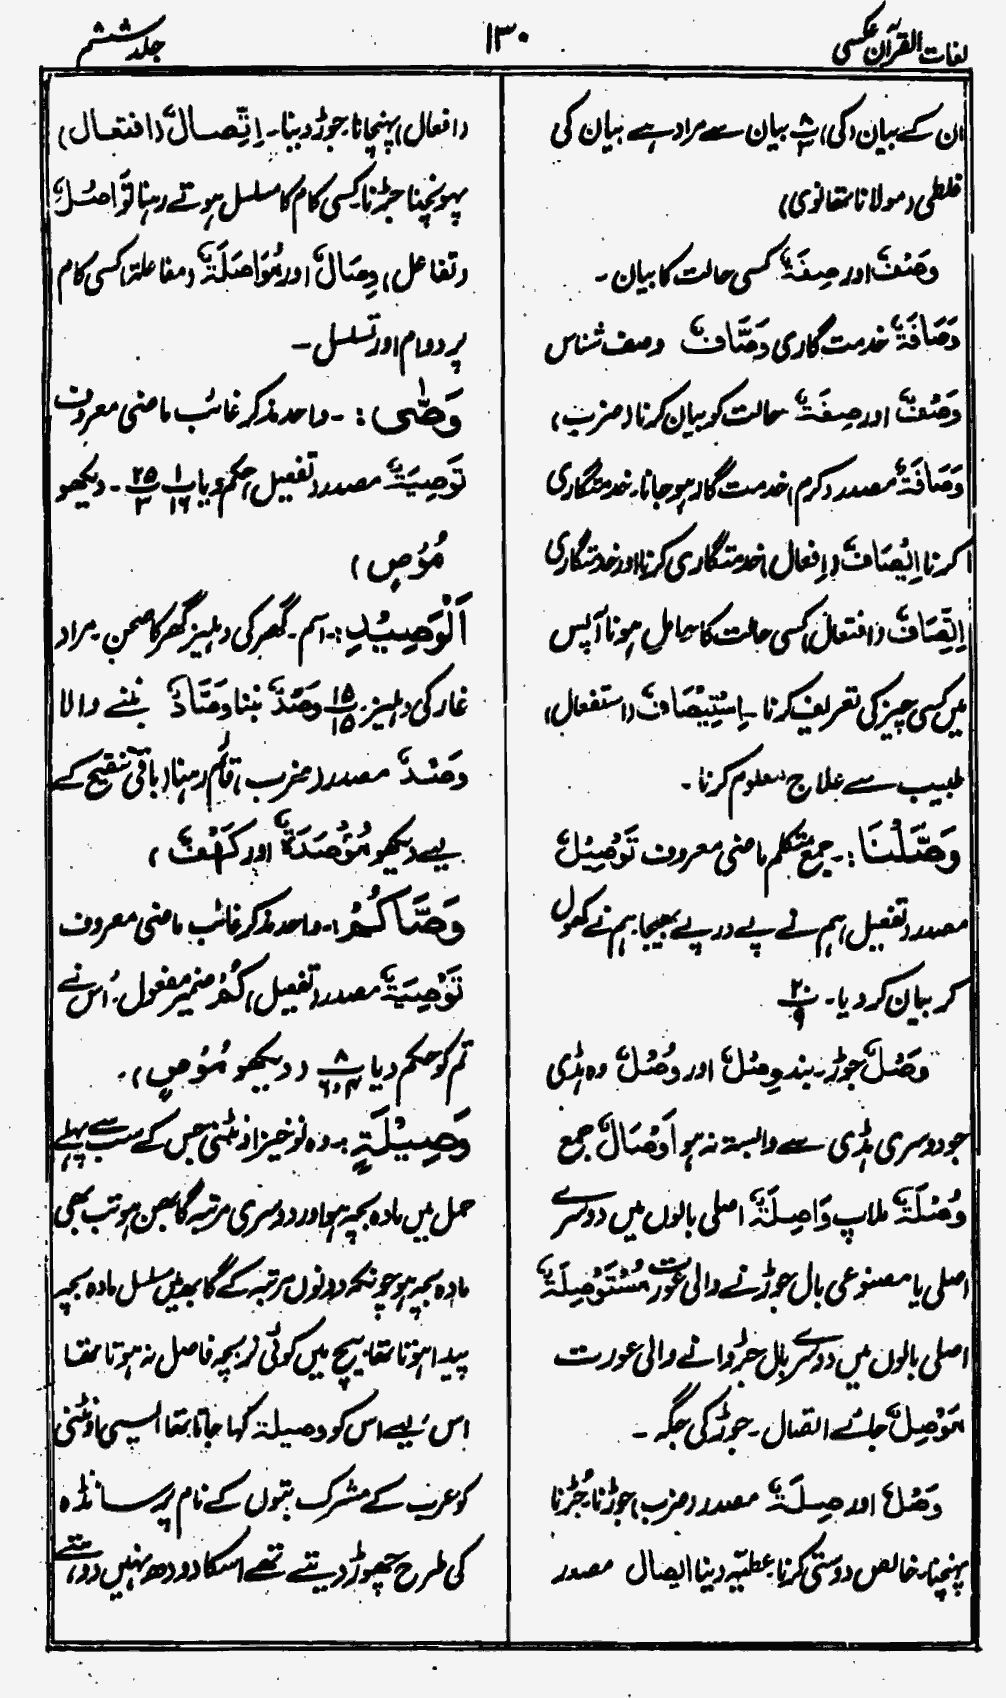 لغات القرآن عکسی
۱۳۰
جلد ششم
ان کے بیان (کی) ۸/۳ بیان سے مراد ہے بیان کی
غلطی (مولانا تھانوی)
وَصْفٌ اور صِفَۃٌ کسی حالت کا بیان ۔
وَصَافَۃٌ خدمت گاری وَصَّافٌ وصف شناس
وَصْفٌ اور صِفَۃٌ حالت کو بیان کرنا (ضرب)
وَصَافَۃٌ مصدر (کرم) خدمت گار ہو جانا۔ خدمتگاری
کرنا اِیْصَافٌ (اِفعال) خدمتگاری کرنا اور خدمتگاری
اِتِّصَافٌ (افتعال) کسی حالت کا حامل ہونا آپس
میں کسی چیز کی تعریف کرنا ۔ اِسْتِیْصَافٌ (استفعال)
طبیب سے علاج معلوم کرنا ۔
وَصَّلْنَا :۔ جمع متکلم ماضی معروف تَوْصِیْلٌ
مصدر (تفعیل) ہم نے پے در پے بھیجا ہم نے کھول
کر بیان کر دیا ۔ ۲۰/۹
وَصْلٌ جوڑ ۔ بند وِصْلٌ اور وُصْلٌ وہ ہڈی
جو دوسری ہڈی سے وابستہ نہ ہو اَوْصَالٌ جمع
وُصْلَۃٌ ملاپ وَاصِلَۃٌ اصلی بالوں میں دوسرے
اصلی یا مصنوعی بال جوڑنے والی عورت مُسْتَوْصِلَۃٌ
اصلی بالوں میں دوسرے بال جڑوانے والی عورت
مَوْصِلٌ جائے اتصال ۔ جوڑ کی جگہ ۔
وَصْلٌ اور صِلَۃٌ مصدر (ضرب) جوڑنا جُڑنا
پہنچنا۔ خالص دوستی کرنا عطیّہ دینا ایصال مصدر
(افعال) پہنچانا۔ جوڑ دینا۔ اِتِّصَالٌ (افتعال)
پہونچنا جڑنا۔ کسی کام کا مسلسل ہوتے رہنا تَوَاصُلٌ
(تفاعل) وِصَالٌ اور مُوَاصَلَۃٌ (مفاعلۃ) کسی کام
پر دوام اور تسلسل ۔
وَصّٰی :۔ واحد مذکر غائب ماضی معروف
تَوْصِیَۃٌ مصدر (تفعیل) حکم دیا ۱/۱۶ ۲۵/۳ ۔ (دیکھو
مُوْصٍ)
اَلْوَصِیْدِ :۔ اسم ۔ گھر کی دہلیز گھر کا صحن ۔ مراد
غار کی دہلیز ۔ ۱۵/۱۵ وَصْدٌ بننا وَصَّادٌ بننے والا
وَصْدٌ مصدر (ضرب) قائم رہنا (باقی تنقیح کے
لیے دیکھو مُؤْصَدَۃٌ اور کَہْفٌ)
وَصَّاکُمْ :۔ واحد مذکر غائب ماضی معروف
تَوْصِیَۃٌ مصدر (تفعیل) کُمْ ضمیر مفعول ۔ اُس نے
تم کو حکم دیا ۸/۶،۴ (دیکھو مُوْصٍ) ۔
وَصِیْلَۃٍ :۔ وہ نوخیز اونٹنی جس کے سب سے پہلے
حمل میں مادہ بچہ ہو اور دوسری مرتبہ گابھن ہو تب بھی
مادہ بچہ ہو چونکہ دونوں مرتبہ کے گابھ میں مسلسل مادہ بچہ
پیدا ہوتا تھا بیچ میں کوئی نر بچہ فاصل نہ ہوتا تھا
اس لیے اس کو وصیلۃ کہا جاتا تھا ایسی اونٹنی
کو عرب کے مشرک بتوں کے نام پر سانڈہ
کی طرح چھوڑ دیتے تھے اسکا دودھ نہیں دوہتے